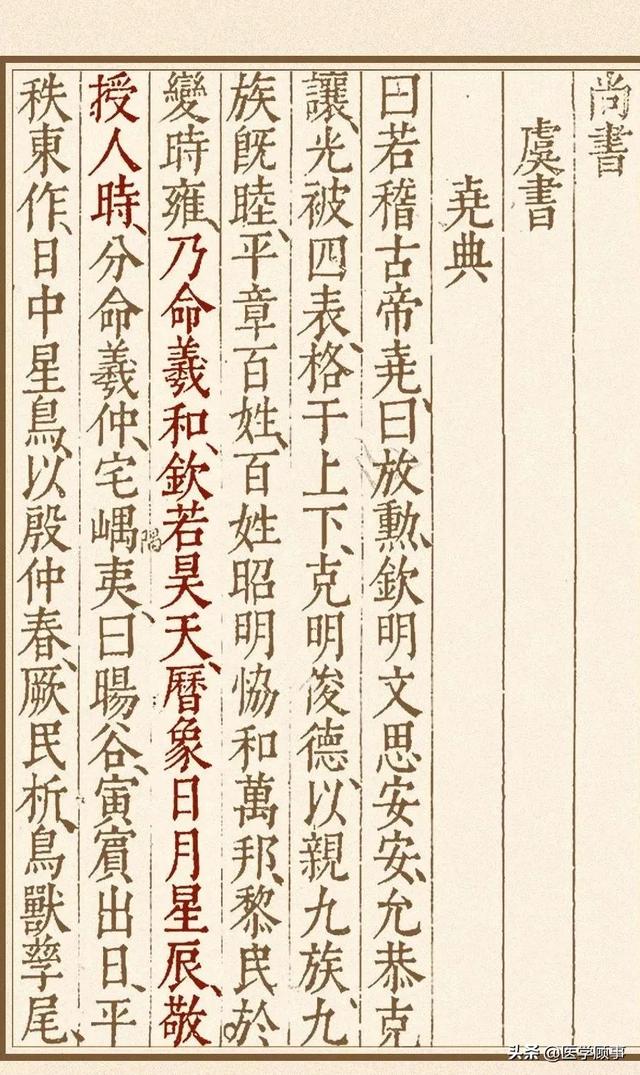 尚書
虞書
堯典
曰若稽古帝堯、曰放勳、欽明文思安安、允恭克
讓、光被四表、格于上下、克明俊德、以親九族、九
族既睦、平章百姓、百姓昭明、協和萬邦、黎民於
變時雍、乃命羲和、欽若昊天、曆象日月星辰、敬
授人時、分命羲仲、宅嵎夷、曰暘谷、寅賓出日、平
隅
秩東作、日中星鳥、以殷仲春、厥民析、鳥獸孳尾、
头条 @医学顾事